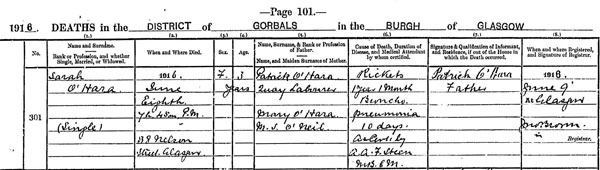 —Page 101.—
1916. DEATHS in the DISTRICT of GORBALS in the BURGH of GLASGOW
(1.) (2.) (3.) (4.) (5.) (6.) (7.) (8.)
No. Name and Surname. Rank or Profession, and whether Single, Married, or Widowed. When and Where Died. Sex. Age. Name, Surname, & Rank or Profession of Father. Name, and Maiden Surname of Mother. Cause of Death, Duration of Disease, and Medical Attendant by whom certified. Signature & Qualification of Informant, and Residence, if out of the House in which the Death occurred. When and where Registered, and Signature of Registrar.
301
Sarah
O'Hara
(Single)
1916.
June
Eighth
7h. 45m. P.M.
Nelson
Street, Glasgow
F.
3
years
Patrick O'Hara
Quay Labourer
Mary O'Hara
M.S. O'Neil
Rickets
1 year 1 month
Broncho-
pneumonia
10 days.
As Cert. by
M.B. C.M.
Patrick O'Hara
Father
1916.
June 9
At Glasgow
Registrar.